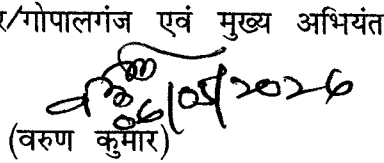 र/गोपालगंज एवं मुख्य अभियंत
06/05/2026
(वरुण कुमार)